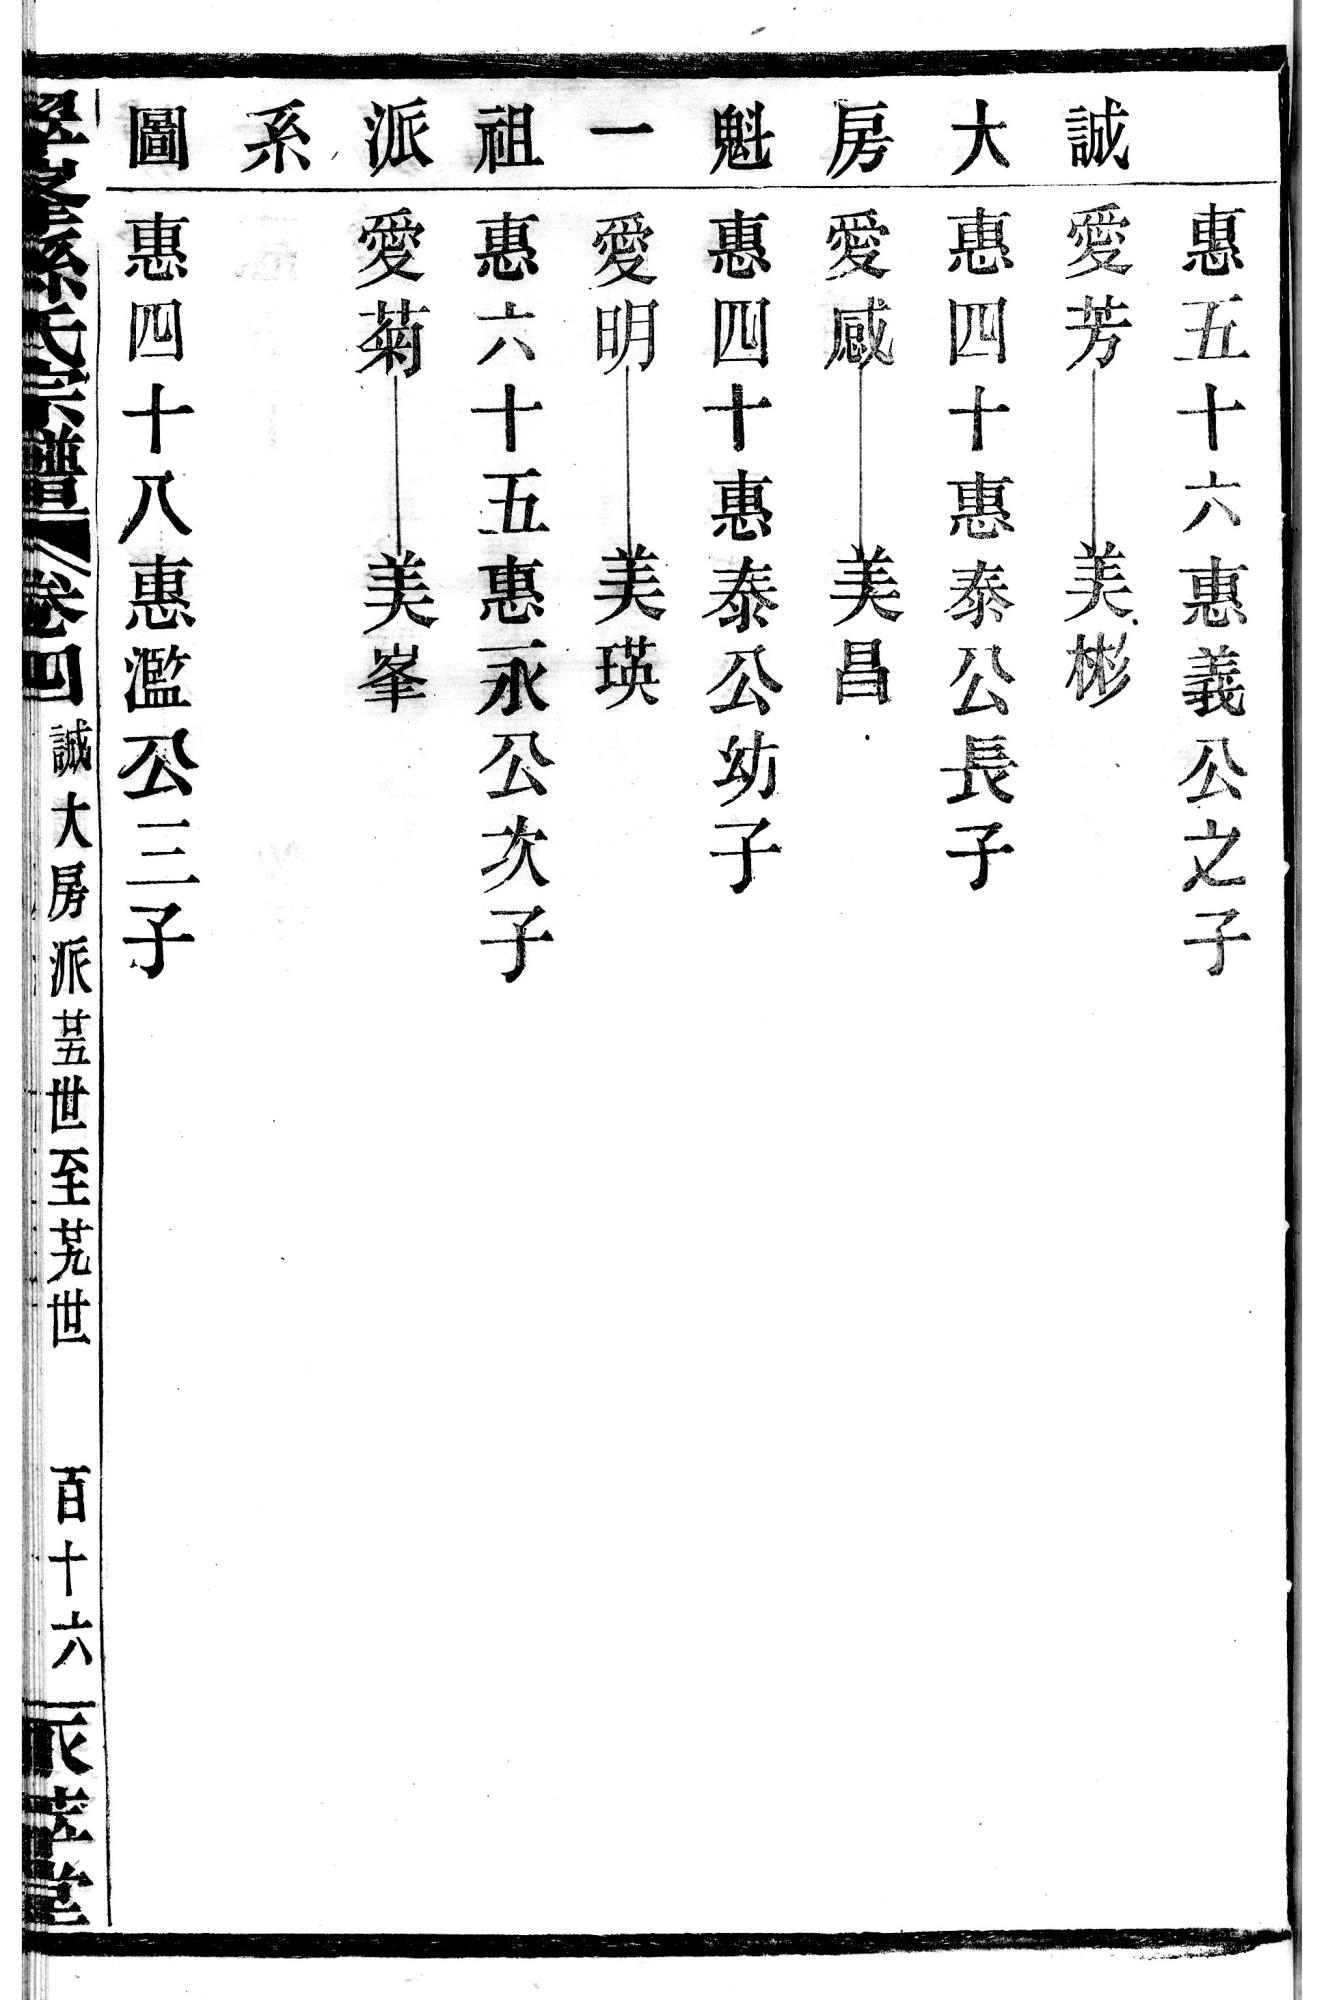 誠大房魁一祖派系圖
惠五十六惠義公之子
愛芳 美彬
惠四十惠泰公長子
愛感 美昌
惠四十惠泰公幼子
愛明 美瑛
惠六十五惠永公次子
愛菊 美峯
惠四十八惠濫公三子
孫氏宗譜 卷四 誠大房派 世至 世 百十六 堂